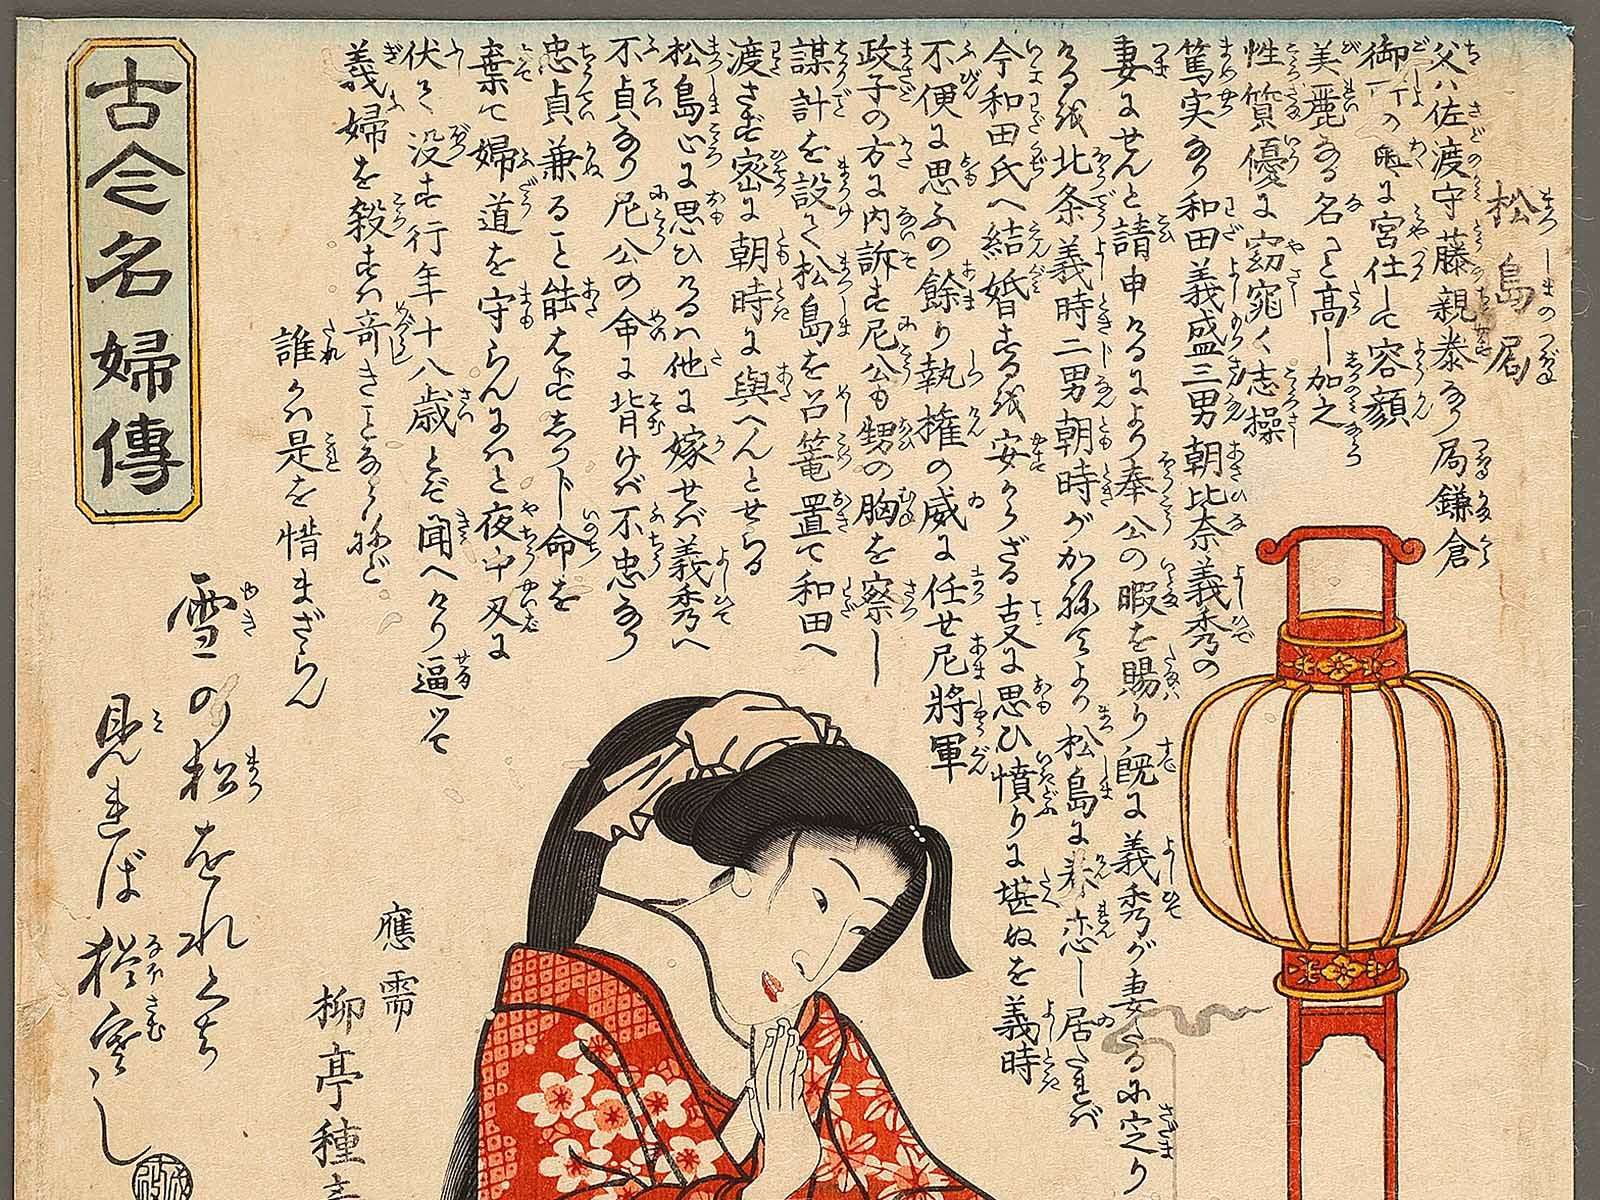 古今名婦傳
松島局
父ハ佐渡守藤親泰なり局鎌倉
御所の奥に宮仕して容顔
美麗なる名さへ高し加之
性質優に窈窕く志操
篤実なり和田義盛三男朝比奈義秀の
妻にせんと請申けるにより奉公の暇を賜り既に義秀が妻たるに定り
ける我北条義時二男朝時がかねてより松島に恋し居たれバ
今和田氏へ結婚する我安からざる事に思ひ憤りに堪ぬを義時
不便に思ふの餘り執権の威に任せ尼将軍
政子の方に内訴す尼公も甥の胸を察し
謀計を設て松島を召篭置て和田へ
渡さず密に朝時に與へんとせらる
松島心に思ひけるハ他に嫁せバ義秀へ
不貞なり尼公の命に背けバ不忠なり
忠貞兼ること能はずしかじ命を
棄て婦道を守らんにハと夜中刃に
伏て没す行年十八歳とぞ聞へけり逼って
義婦を殺すハ奇きことならねど
誰かハ是を惜まざらん
雪の松をれ口
見れば猶寒し
應需
柳亭種